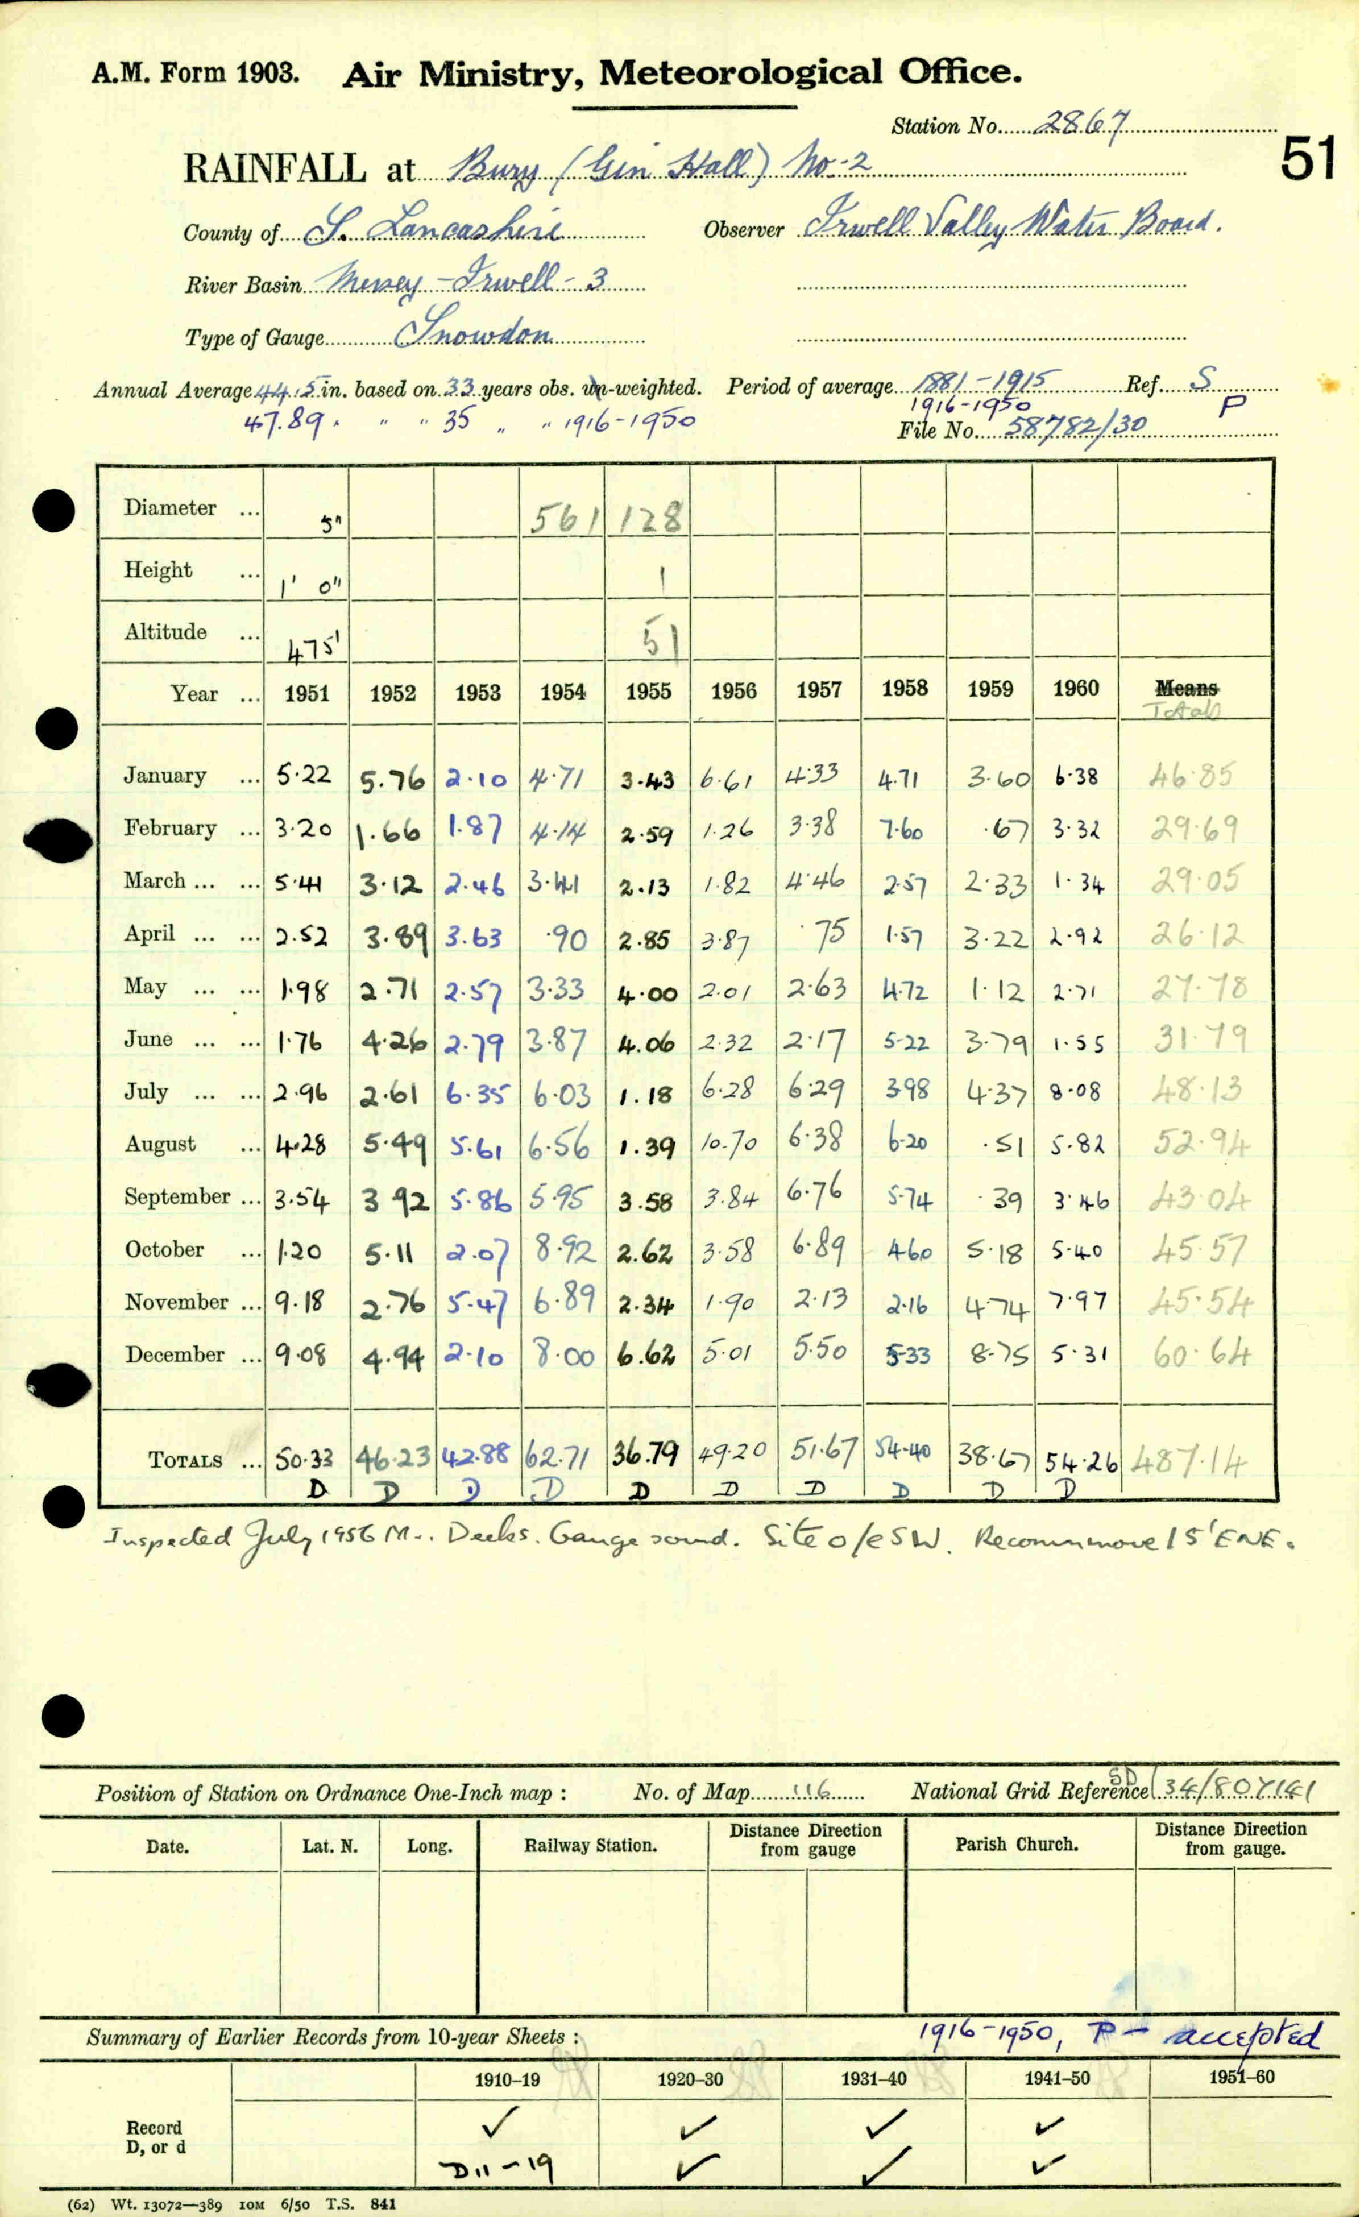 A.M. Form 1903. Air Ministry, Meteorological Office.
Station No. 2867
51
RAINFALL at Bury (Gin Hall) No. 2
County of S. Lancashire Observer Irwell Valley Water Board.
River Basin Mersey - Irwell - 3
Type of Gauge Snowdon
Annual Average 44.5 in. based on 33 years obs. un-weighted. Period of average 1881-1915 Ref. S
47.89 " " " 35 " " 1916-1950 1916-1950 P
File No. 58782/30
Diameter ... 5" 561 128
Height ... 1' 0" 1
Altitude ... 475' 51
Year ... 1951 1952 1953 1954 1955 1956 1957 1958 1959 1960 Means
Totals
January ... 5.22 5.76 2.10 4.71 3.43 6.61 4.33 4.71 3.60 6.38 46.85
February ... 3.20 1.66 1.87 4.14 2.59 1.26 3.38 7.60 .67 3.32 29.69
March ... ... 5.41 3.12 2.46 3.41 2.13 1.82 4.46 2.57 2.33 1.34 29.05
April ... ... 2.52 3.89 3.63 .90 2.85 3.87 .75 1.57 3.22 2.92 26.12
May ... ... 1.98 2.71 2.57 3.33 4.00 2.01 2.63 4.72 1.12 2.71 27.78
June ... ... 1.76 4.26 2.79 3.87 4.06 2.32 2.17 5.22 3.79 1.55 31.79
July ... ... 2.96 2.61 6.35 6.03 1.18 6.28 6.29 3.98 4.37 8.08 48.13
August ... 4.28 5.49 5.61 6.56 1.39 10.70 6.38 6.20 .51 5.82 52.94
September ... 3.54 3 92 5.86 5.95 3.58 3.84 6.76 5.74 .39 3.46 43.04
October ... 1.20 5.11 2.07 8.92 2.62 3.58 6.89 4.60 5.18 5.40 45.57
November ... 9.18 2.76 5.47 6.89 2.34 1.90 2.13 2.16 4.74 7.97 45.54
December ... 9.08 4.94 2.10 8.00 6.62 5.01 5.50 5.33 8.75 5.31 60.64
TOTALS ... 50.33 46.23 42.88 62.71 36.79 49.20 51.67 54.40 38.67 54.26 487.14
D D D D D D D D D D
Inspected July 1956 Mr. Deeks. Gauge sound. Site o/e SW. Recomm move 15' ENE.
Position of Station on Ordnance One-Inch map : No. of Map 116 National Grid Reference SD 34/807141
Date. Lat. N. Long. Railway Station. Distance from Direction gauge Parish Church. Distance from Direction gauge.
Summary of Earlier Records from 10-year Sheets : 1916-1950, P - accepted
1910–19 1920–30 1931–40 1941–50 1951–60
Record ✓ ✓ ✓ ✓
D, or d D11-19 ✓ ✓ ✓
(62) Wt. 13072—389 10M 6/50 T.S. 841